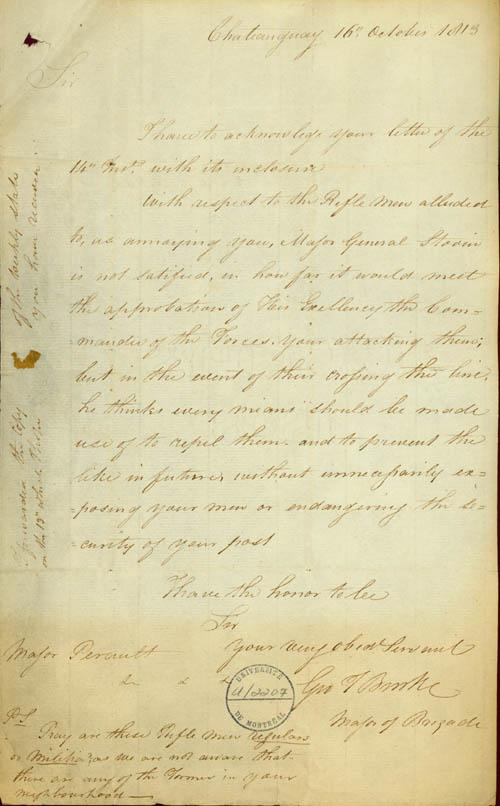 Chateauguay 16th October 1813
Sir
I have to acknowledge your letter of the
14th Inst. with its inclosure
With respect to the Rifle Men alluded
to, as annoying you, Major General Stovin
is not satisfied, in how far it would meet
the approbation of His Exellency the Com=
=mander of the Forces. Your attacking them;
but in the event of their crossing the line,
he thinks every means should be made
use of to repel them. and to prevent the
like in future, without unnecessarily ex=
=posing your men or endangering the se=
=curity of your post
I have the honor to be
Sir
Your very obedt Servant
Major Perault
Geo T Burke
Major of Brigade
UNIVERSITÉ
U/2207
DE MONTRÉAL
Ps
Pray are these Rifle Men regulars
or Militia? as we are not aware that
there are any of the Former in your
neighbourhood
of the weekly state
you have received
Forwarded the copy
on the 13th